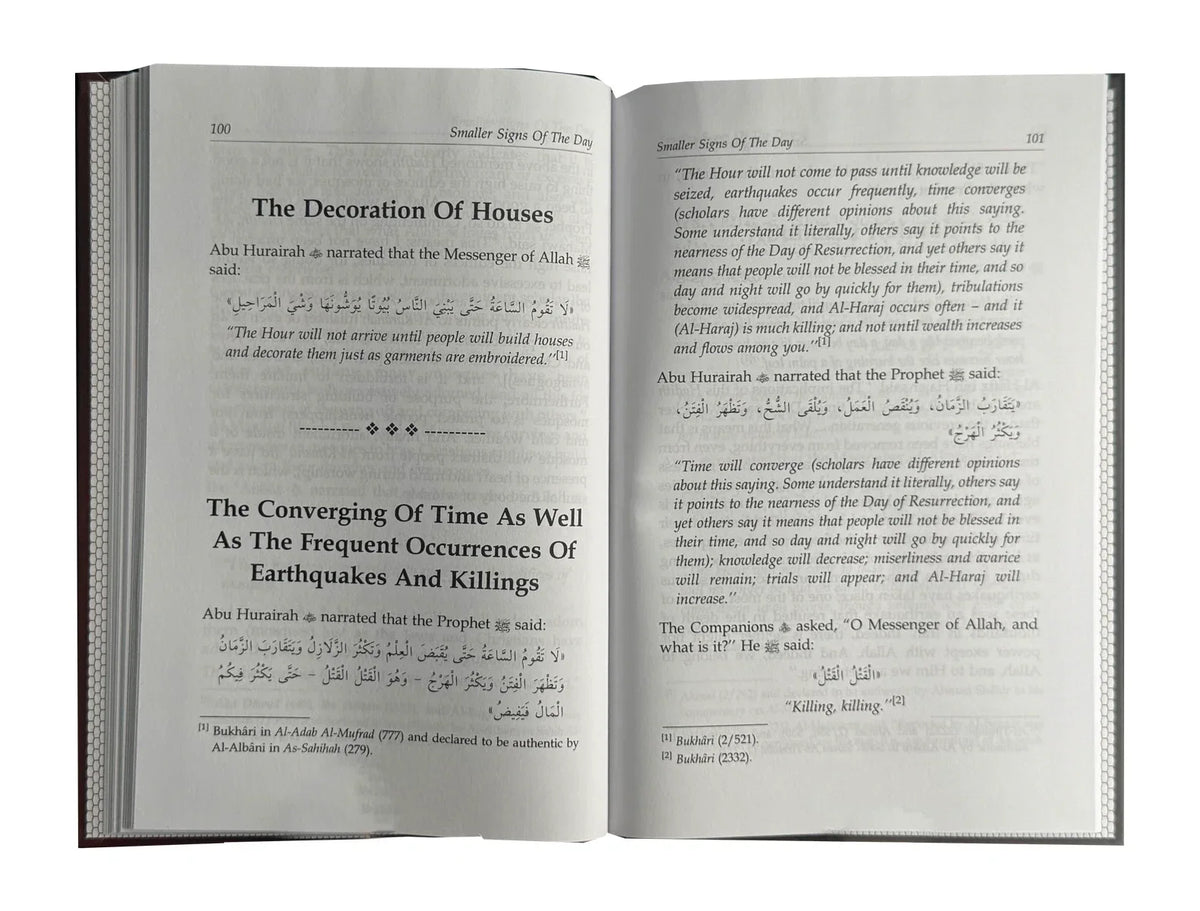 100
Smaller Signs Of The Day
The Decoration Of Houses
Abu Hurairah ؓ narrated that the Messenger of Allah ﷺ
said:
«لَا تَقُومُ السَّاعَةُ حَتَّى يَبْنِيَ النَّاسُ بُيُوتًا يُوَشُّونَهَا وَشْيَ الْمَرَاحِيلِ»
“The Hour will not arrive until people will build houses
and decorate them just as garments are embroidered.”[1]
---------- ❖ ❖ ❖ ----------
The Converging Of Time As Well
As The Frequent Occurrences Of
Earthquakes And Killings
Abu Hurairah ؓ narrated that the Prophet ﷺ said:
«لَا تَقُومُ السَّاعَةُ حَتَّى يُقْبَضَ الْعِلْمُ وَتَكْثُرَ الزَّلَازِلُ وَيَتَقَارَبَ الزَّمَانُ
وَتَظْهَرَ الْفِتَنُ وَيَكْثُرَ الْهَرْجُ - وَهُوَ الْقَتْلُ الْقَتْلُ - حَتَّى يَكْثُرَ فِيكُمُ
الْمَالُ فَيَفِيضُ»
[1] Bukhâri in Al-Adab Al-Mufrad (777) and declared to be authentic by
Al-Albâni in As-Sahihah (279).
Smaller Signs Of The Day
101
“The Hour will not come to pass until knowledge will be
seized, earthquakes occur frequently, time converges
(scholars have different opinions about this saying.
Some understand it literally, others say it points to the
nearness of the Day of Resurrection, and yet others say it
means that people will not be blessed in their time, and so
day and night will go by quickly for them), tribulations
become widespread, and Al-Haraj occurs often – and it
(Al-Haraj) is much killing; and not until wealth increases
and flows among you.”[1]
Abu Hurairah ؓ narrated that the Prophet ﷺ said:
«يَتَقَارَبُ الزَّمَانُ، وَيَنْقُصُ الْعَمَلُ، وَيُلْقَى الشُّحُّ، وَتَظْهَرُ الْفِتَنُ،
وَيَكْثُرُ الْهَرْجُ»
“Time will converge (scholars have different opinions
about this saying. Some understand it literally, others say
it points to the nearness of the Day of Resurrection, and
yet others say it means that people will not be blessed in
their time, and so day and night will go by quickly for
them); knowledge will decrease; miserliness and avarice
will remain; trials will appear; and Al-Haraj will
increase.”
The Companions ؓ asked, “O Messenger of Allah, and
what is it?” He ﷺ said:
«الْقَتْلُ الْقَتْلُ»
“Killing, killing.”[2]
[1] Bukhâri (2/521).
[2] Bukhâri (2332).